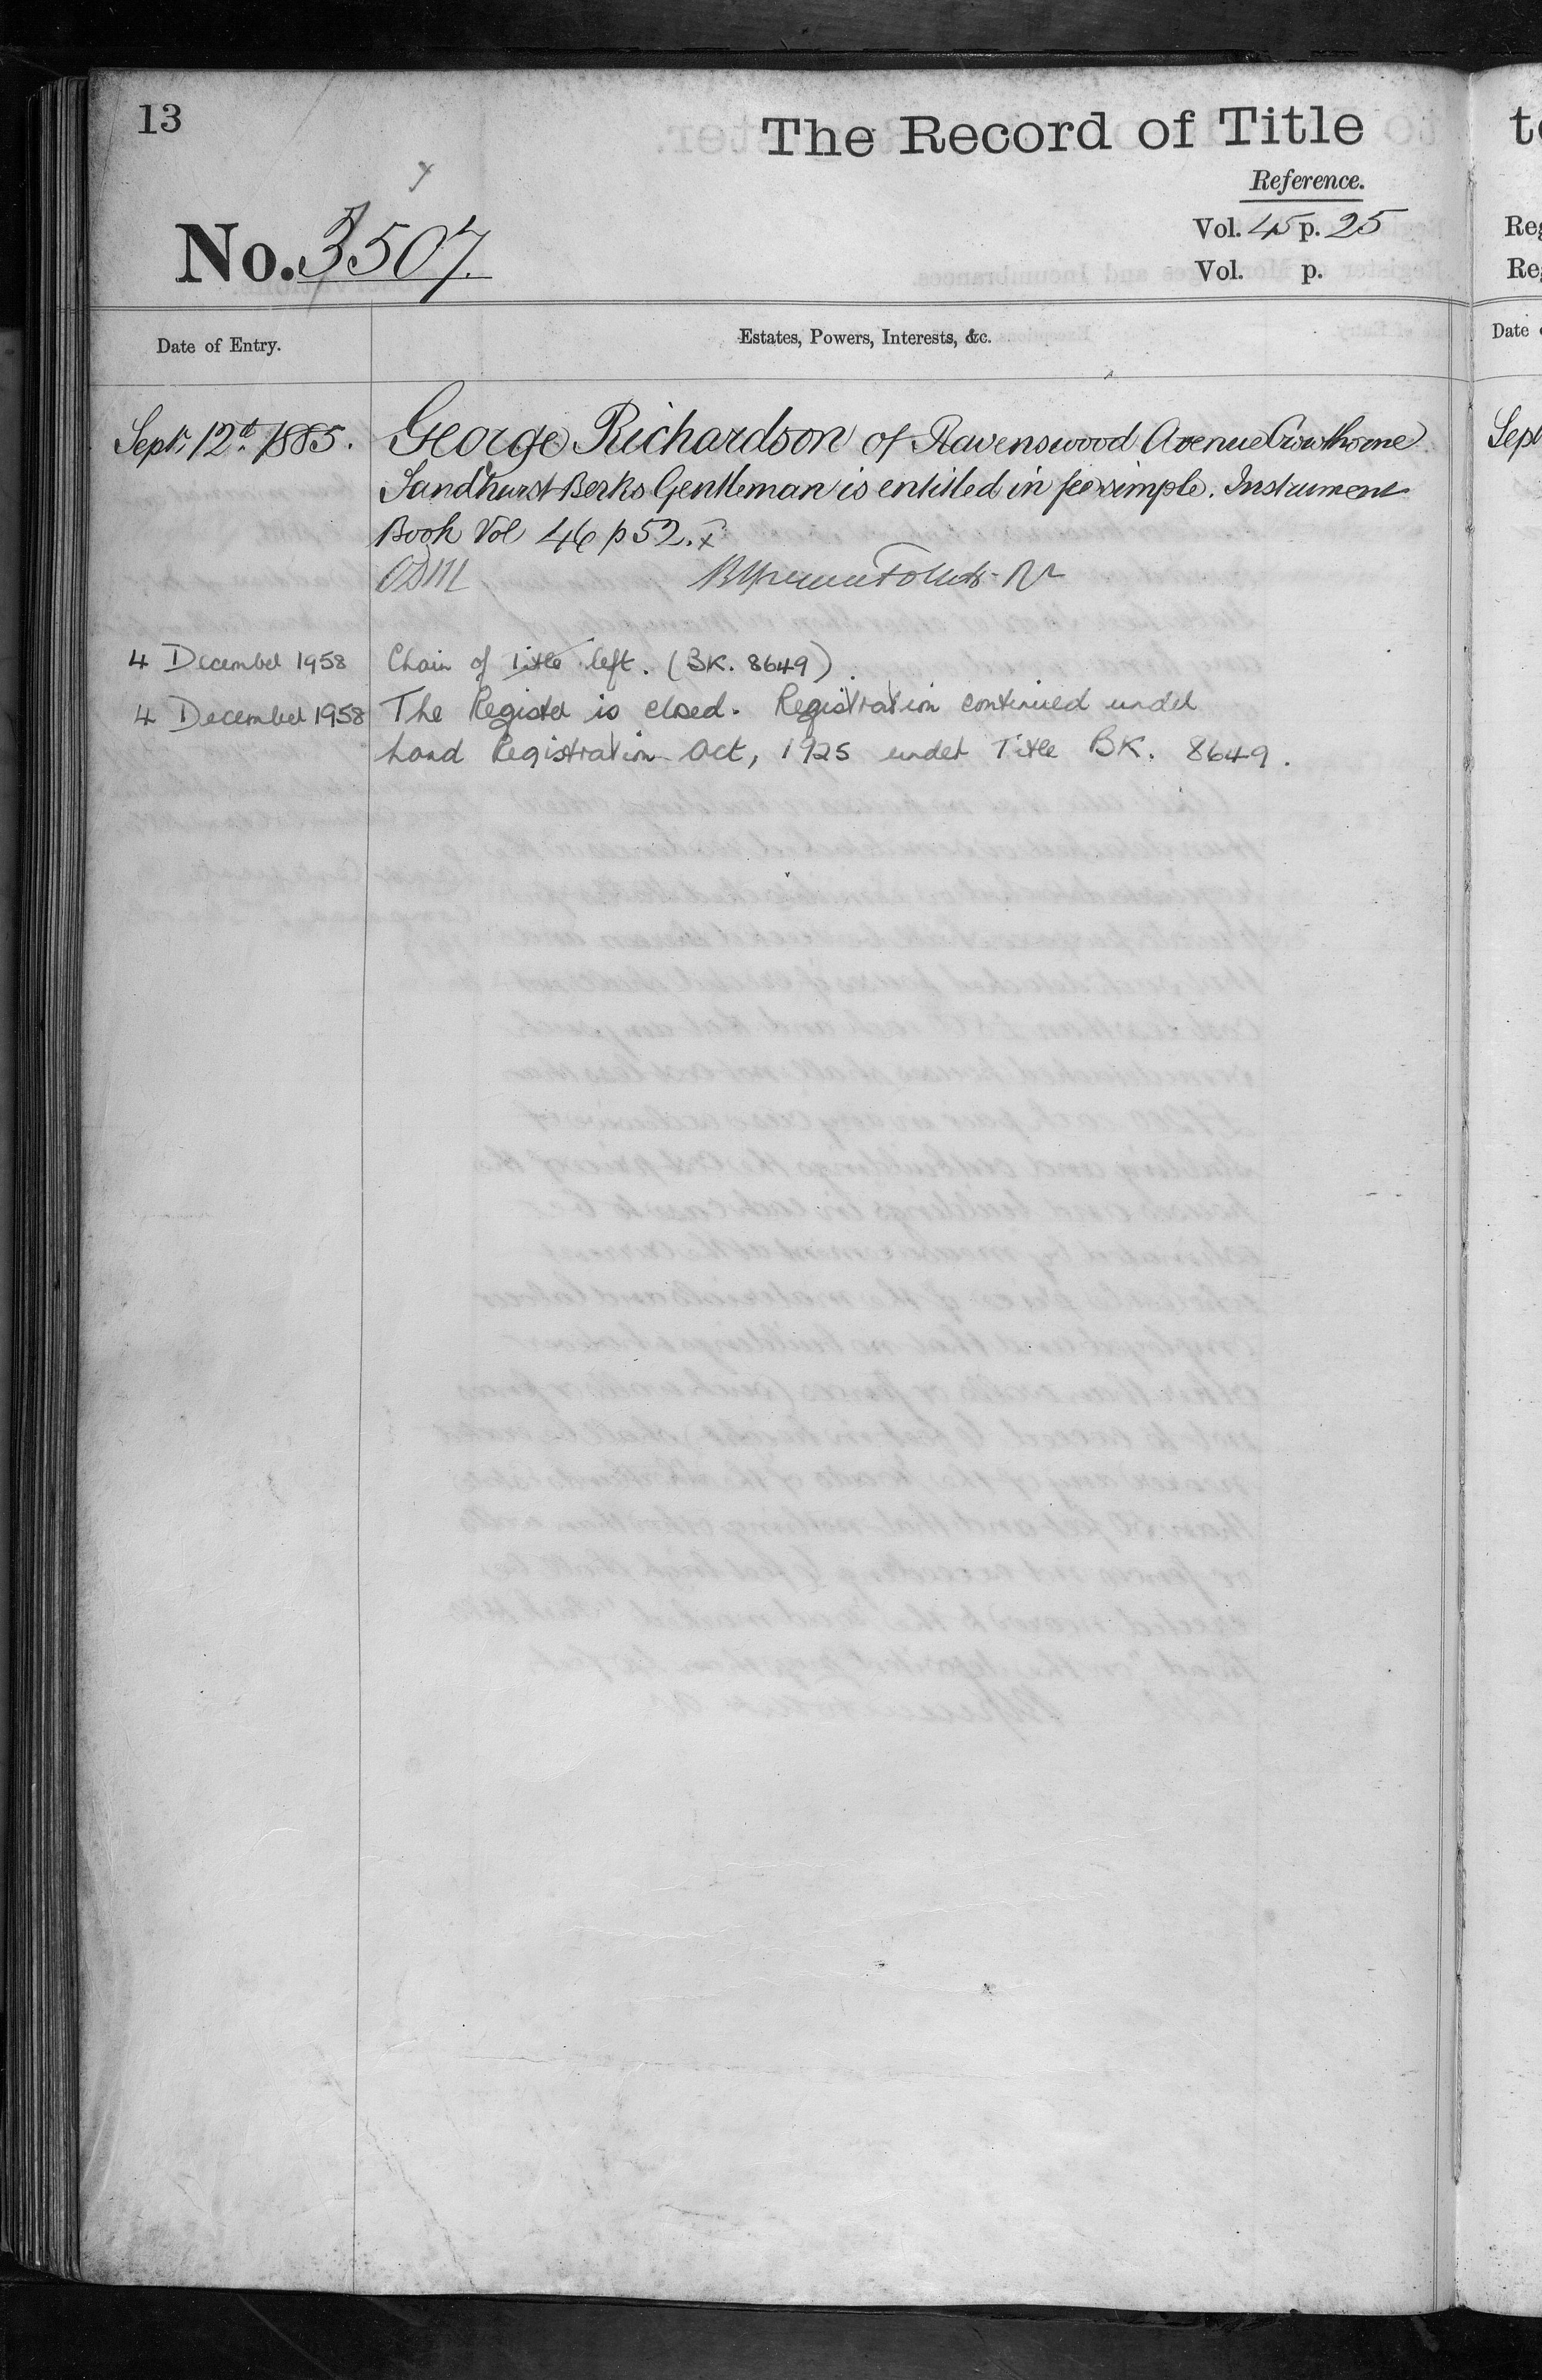 13
The Record of Title
Reference.
Vol. 45 p. 25
No. 3507.
Vol. p.
Date of Entry.
Estates, Powers, Interests, &c.
Sept. 12th 1885.
George Richardson of Ravenswood Avenue Crowthorne
Sandhurst Berks Gentleman is entitled in fee simple. Instrument
Book Vol 46 p 52. x
4 December 1958
Chain of Title left. (BK. 8649).
4 December 1958
The Register is closed. Registration continued under
Land Registration Act, 1925 under Title BK. 8649.
Date
Sept